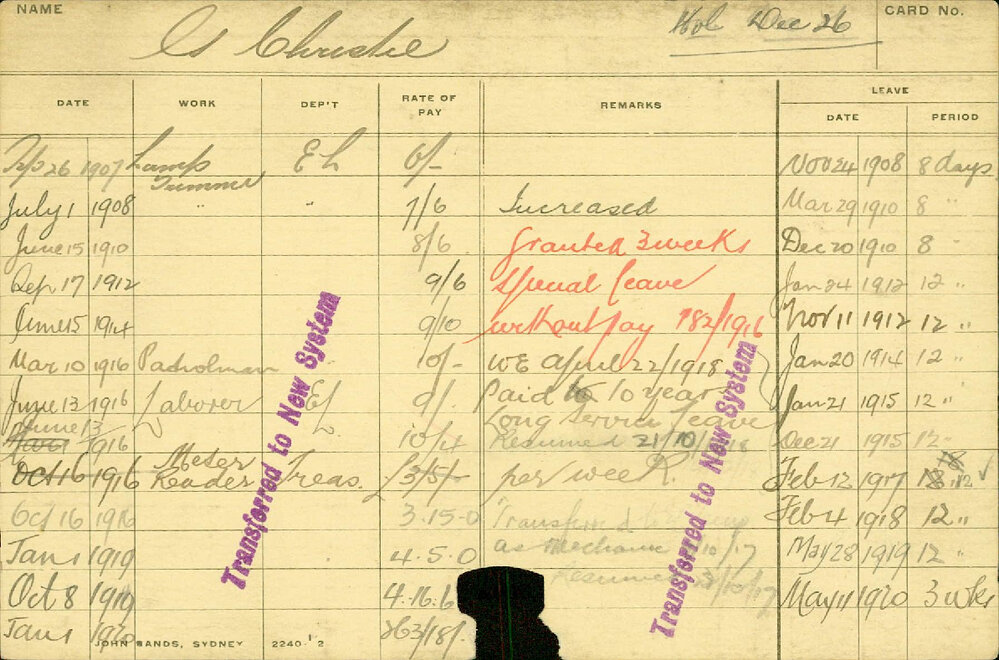 NAME
G Christie
Hol Dec 26
CARD No.
DATE WORK DEP'T RATE OF PAY REMARKS LEAVE
DATE PERIOD
26 1907 Lamp Trimmer EL 6/- Nov 24 1908 8 days
July 1 1908 " " 7/6 Increased Mar 29 1910 8 "
June 15 1910 8/6 Granted 3 weeks Dec 20 1910 8 "
Sep 17 1912 9/6 Special leave Jan 24 1912 12 "
June 15 1914 9/10 without pay 782/1916 Nov 11 1912 12 "
Mar 10 1916 Patrolman 10/- WE April 22/1918 Jan 20 1914 12 "
June 13 1916 Laborer EL 9/- Paid 10 year Jan 21 1915 12 "
June 13 1916 10/4 Long Service leave
Resumed 21/10/18 Dec 21 1915 12 "
Oct 16 1916 Meter Reader Treas. £3/5/- per week. Feb 12 1917 12 ✓
Oct 16 1916 3.15-0 Transferred Feb 4 1918 12 "
Jan 1 1919 4.5.0 as Mechanic /10/17 May 28 1919 12 "
Resumed /10/17
Oct 8 1919 4.16.6 May 11 1920 3 wks
Jan 1 1920
Transferred to New System
Transferred to New System
JOHN SANDS, SYDNEY 2240-12